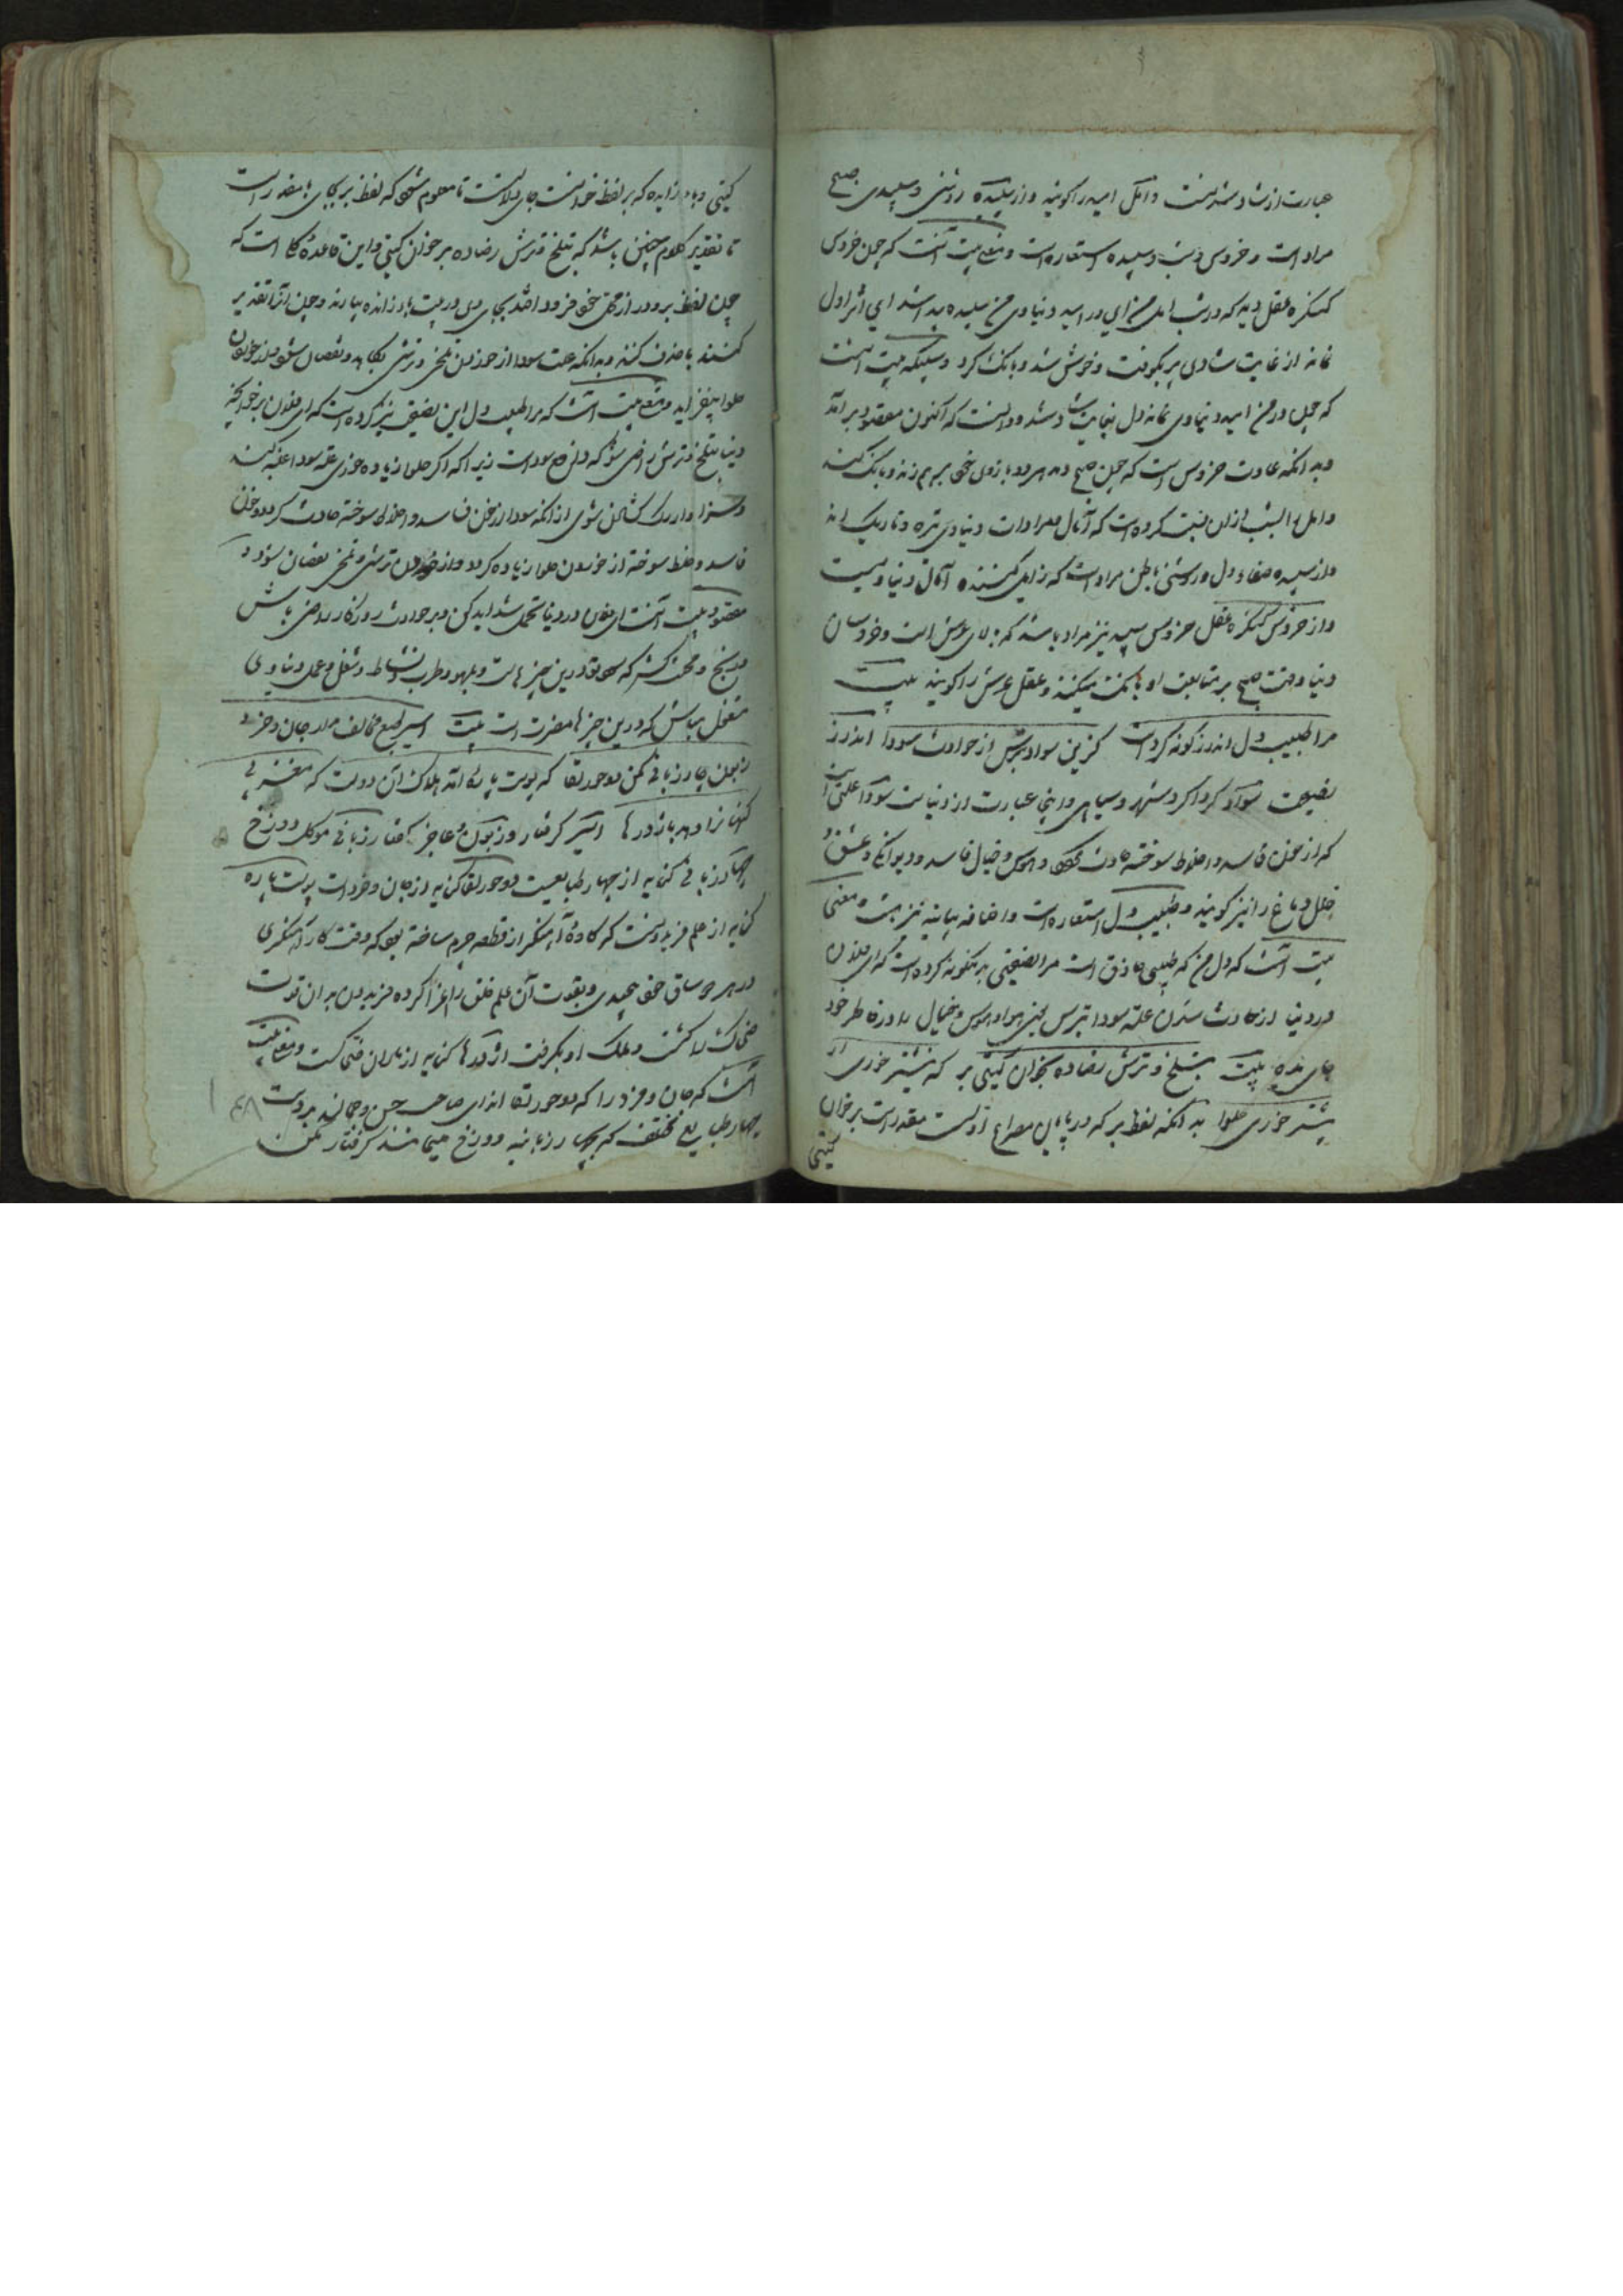 عبارت از شاد شدنست و امل امید را گویند و از سپیده روشنی و سپیدی صبح
مراد است و خروس و شب و سپیده استعاره است و معنی بیت آنست که چون خروس
کنکره عقل دید که در شب امل من ای در امید دنیاوی من سپیده پیدا شد ای اثر اول
نماند از غایت شادی پر بکوفت و خوش شد و بانک کرد
که چون در من امید دنیاوی نماند دل بغایت شاد شد و دانست که اکنون مقصود برآمد
بدانکه عادت خروس است که چون صبح دمد هر دو بازوی خود بر هم زند و بانک کند
و امل را بشب از ان نسبت کرده است که آمال و مرادات دنیاوی تیره و تاریک اند
و از سپیده صفاء دل و روشنی باطن مراد است که زایل کننده آمال دنیاویست
و از خروس کنکره عقل خروس سپید نیز مراد باشد که بالای عرش است و خروسان
دنیا وقت صبح بر متابعت او بانک میکنند و عقل عرش را گویند بیت
مرا طبیب دل اندرز گونه کردست کزین سواد بترس از حوادث سودا اندرز
نصیحت سواد گرداگرد شهر و سیاهی و اینجا عبارت از دنیاست سودا علتی است
که از خون فاسد و اخلاط سوخته حادث گردد و هوس و خیال فاسد و دیوانگی و عشق و
خلل دماغ را نیز گویند و طبیب دل استعاره است و اضافه بیانیه نیز هست و معنی
بیت آنست که دل من که طبیبی حاذق است مرا نصیحتی بدینگونه کرده است که ای فلان
در دنیا از حادث شدن علت سودا بترس یعنی هوا و هوس و خیال را در خاطر خود
جای مده بیت بتلخ و ترش رضا ده بخوان گیتی بر که نیشتر خوری ار
بیشتر خوری حلوا بدانکه لفظ بر که در پایان مصراع اولست مقدر است بر خوان
گیتی
گیتی و با زایده که بر لفظ خوانست بجای بالاست تا معلوم شود که لفظ بر بجای با مقدر است
تا تقدیر کلام چنین باشد که بتلخ و ترش رضا ده بر خوان گیتی و این قاعده کلی است که
چون لفظ بر و در از محل خود فرود افتد بجای وی در بیت با زایده بیارند و چون آنرا تقدیر
کنند با حذف کنند و بدانکه علت سودا از خوردن تلخی و ترشی بکاهد و نقصان شود و از خوردن
حلوا بیفزاید و معنی بیت آنست که مرا طبیب دل این نصیحت نیز کرده است که ای فلان بر خوانچه
دنیا بتلخ و ترش راضی شو که دافع سوداست زیرا که اگر حلوا زیاده خوری علت سودا غلبه کند
و سزاوار رگ گشادن شوی از آنکه سودا از خون فاسد و اخلاط سوخته حادث گردد و خون
فاسد و خلط سوخته از خوردن حلوا زیاده گردد و از خوردن ترشی و تلخی نقصان شود و
مقصود بیت آنست ای فلان در دنیا تحمل شداید کن و بر حوادث روزگار راضی باش
و رنج و محنت کش که سود تو درین چیز هاست و بلهو و طرب و نشاط و شغل و عمل دنیاوی
مشغول مباش که درین چیزها مضرت است بیت اسیر طبع مخالف مدار جان و خرد
زبون چار زبانی مکن دو حور لقا که پوست پاره آمد هلاک آن دولت که مغز بی
گنهان را دهد باژدرها اسیر گرفتار و زبون عاجز و گرفتار زبانی موکل دوزخ
چهار زبانی کنایه از چهار طبایعست دو حور لقا کنایه از جان و خرد است پوست پاره
کنایه از علم فریدونست که کاوه آهنگر از قطعه چرم ساخته بود که وقت کار آهنگری
در هر دو ساق خود پیچیدی و بقوت آن علم خلق را اغرا کرده فریدون بدان قوت
ضحاک را کشت و ملک او بگرفت اژدرها کنایه از ماران ضحاک است و معنی بیت
آنست که جان و خرد را که دو حور لقا اند ای صاحب حسن و جمالند بدست
چهار طبایع مختلف که بچهار زبانیه دوزخ میمانند گرفتار مکن
۴۸